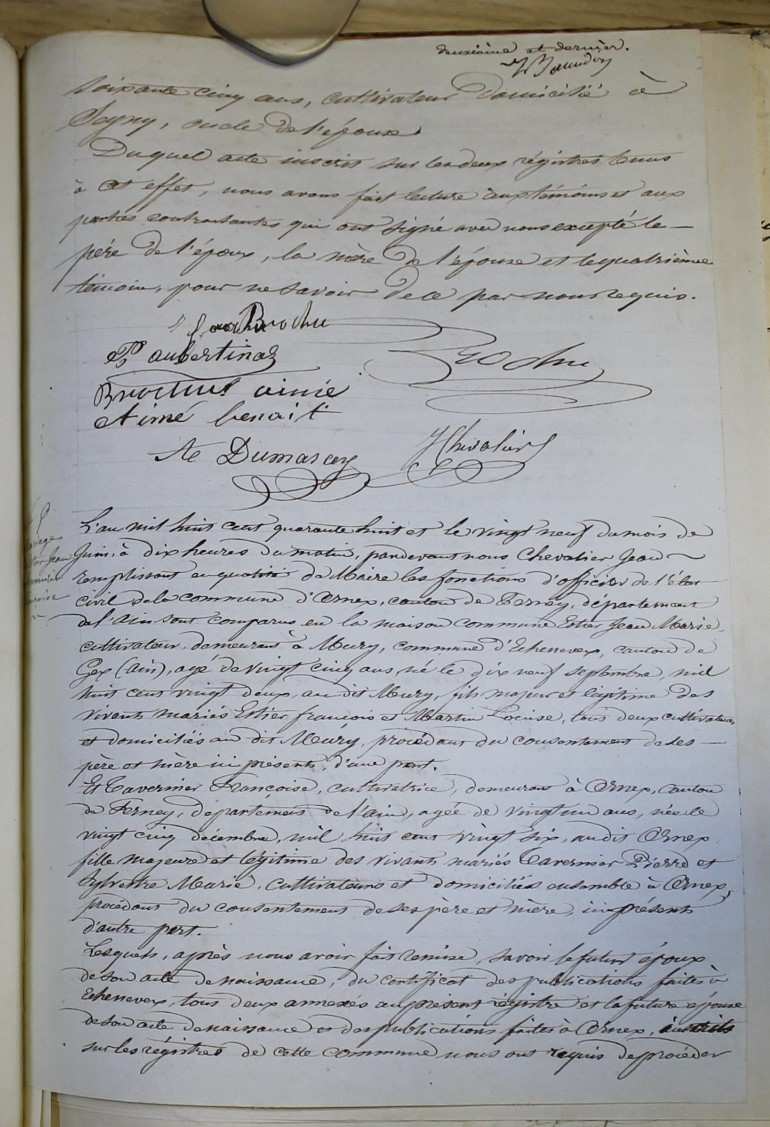 deuxième et dernier.
soixante cinq ans, cultivateur domicilié à
Segny, oncle de l'épouse.
Duquel acte inscrit sur les deux régistres tenus
à cet effet, nous avons fait lecture aux témoins et aux
parties contractantes qui ont signé avec nous excepté le
père de l'époux, la mère de l'épouse et le quatrième
témoin, pour ne savoir de ce par nous requis.
Brochu
aubertinaz Brochu
ainé
Aimé benait
Dumarcey JChevalier
L'an mil huit cent quarante huit et le vingt neuf du mois de
Juin, à dix heures du matin, pardevant nous Chevalier Jean
remplissant en qualité de Maire les fonctions d'officier de l'état
civil de la commune d'Ornex, canton de Ferney, département
de l'Ain sont comparus en la maison commune Estier Jean Marie,
cultivateur, demeurant à Mury, commune d'Echenevex, canton de
Gex (ain), agé de vingt cinq ans, né le dix neuf septembre, mil
huit cent vingt deux, au dit Mury, fils majeur et légitime des
vivants mariés Estier françois et Martin Louise, tous deux cultivateurs
et domiciliés au dit Mury, procédant du consentement de ses
père et mère ici présents, d'une part.
Et Tavernier Françoise, cultivatrice, demeurant à Ornex, canton
de Ferney, département de l'ain, agée de vingt un ans, née le
vingt cinq décembre, mil huit cent vingt six, au dit Ornex
fille majeure et légitime des vivants mariés Tavernier Pierre et
Sylvestre Marie, cultivateurs et domiciliés ensemble à Ornex,
procédant du consentement de ses père et mère, ici présents
d'autre part.
Lesquels, après nous avoir fait remise, savoir le futur époux
de son acte de naissance, du certificat des publications faites à
Echenevex, tous deux annexés au présent régistre et la future épouse
de son acte de naissance et des publications faites à Ornex,
sur les régistres de cette commune nous ont requis de procéder